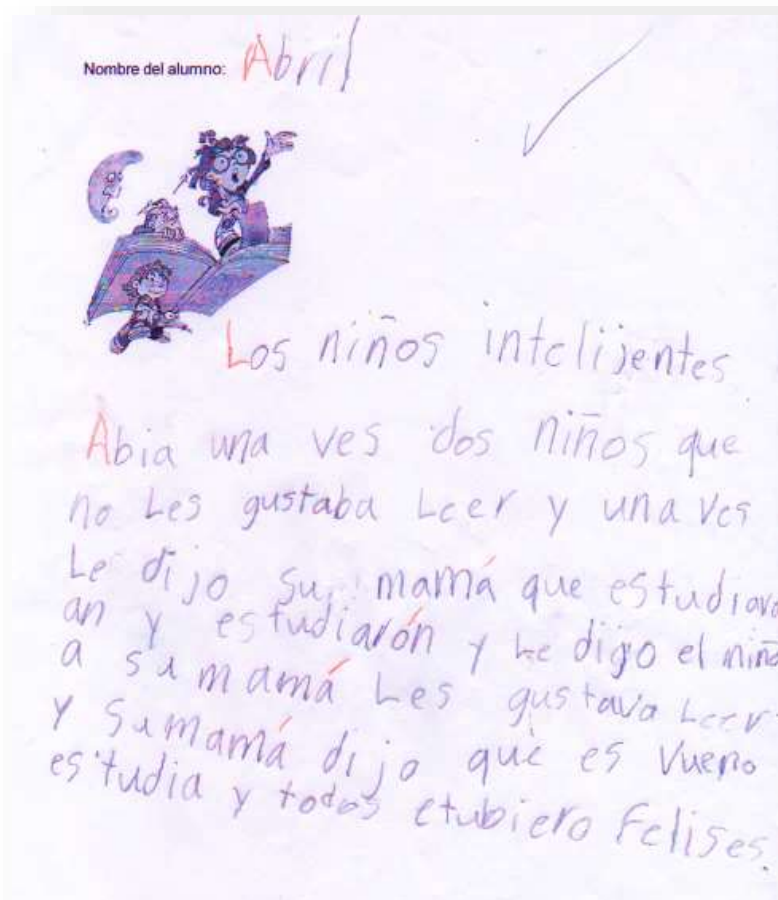 Nombre del alumno: Abril
Los niños intelijentes
Abia una ves dos niños que
no Les gustaba Leer y una ves
Le dijo su mamá que estudiava
an y estudiarón y Le digo el niño
a su mamá Les gustava Leer
y su mamá dijo que es vueno
estudia y todos etubiero Felises.